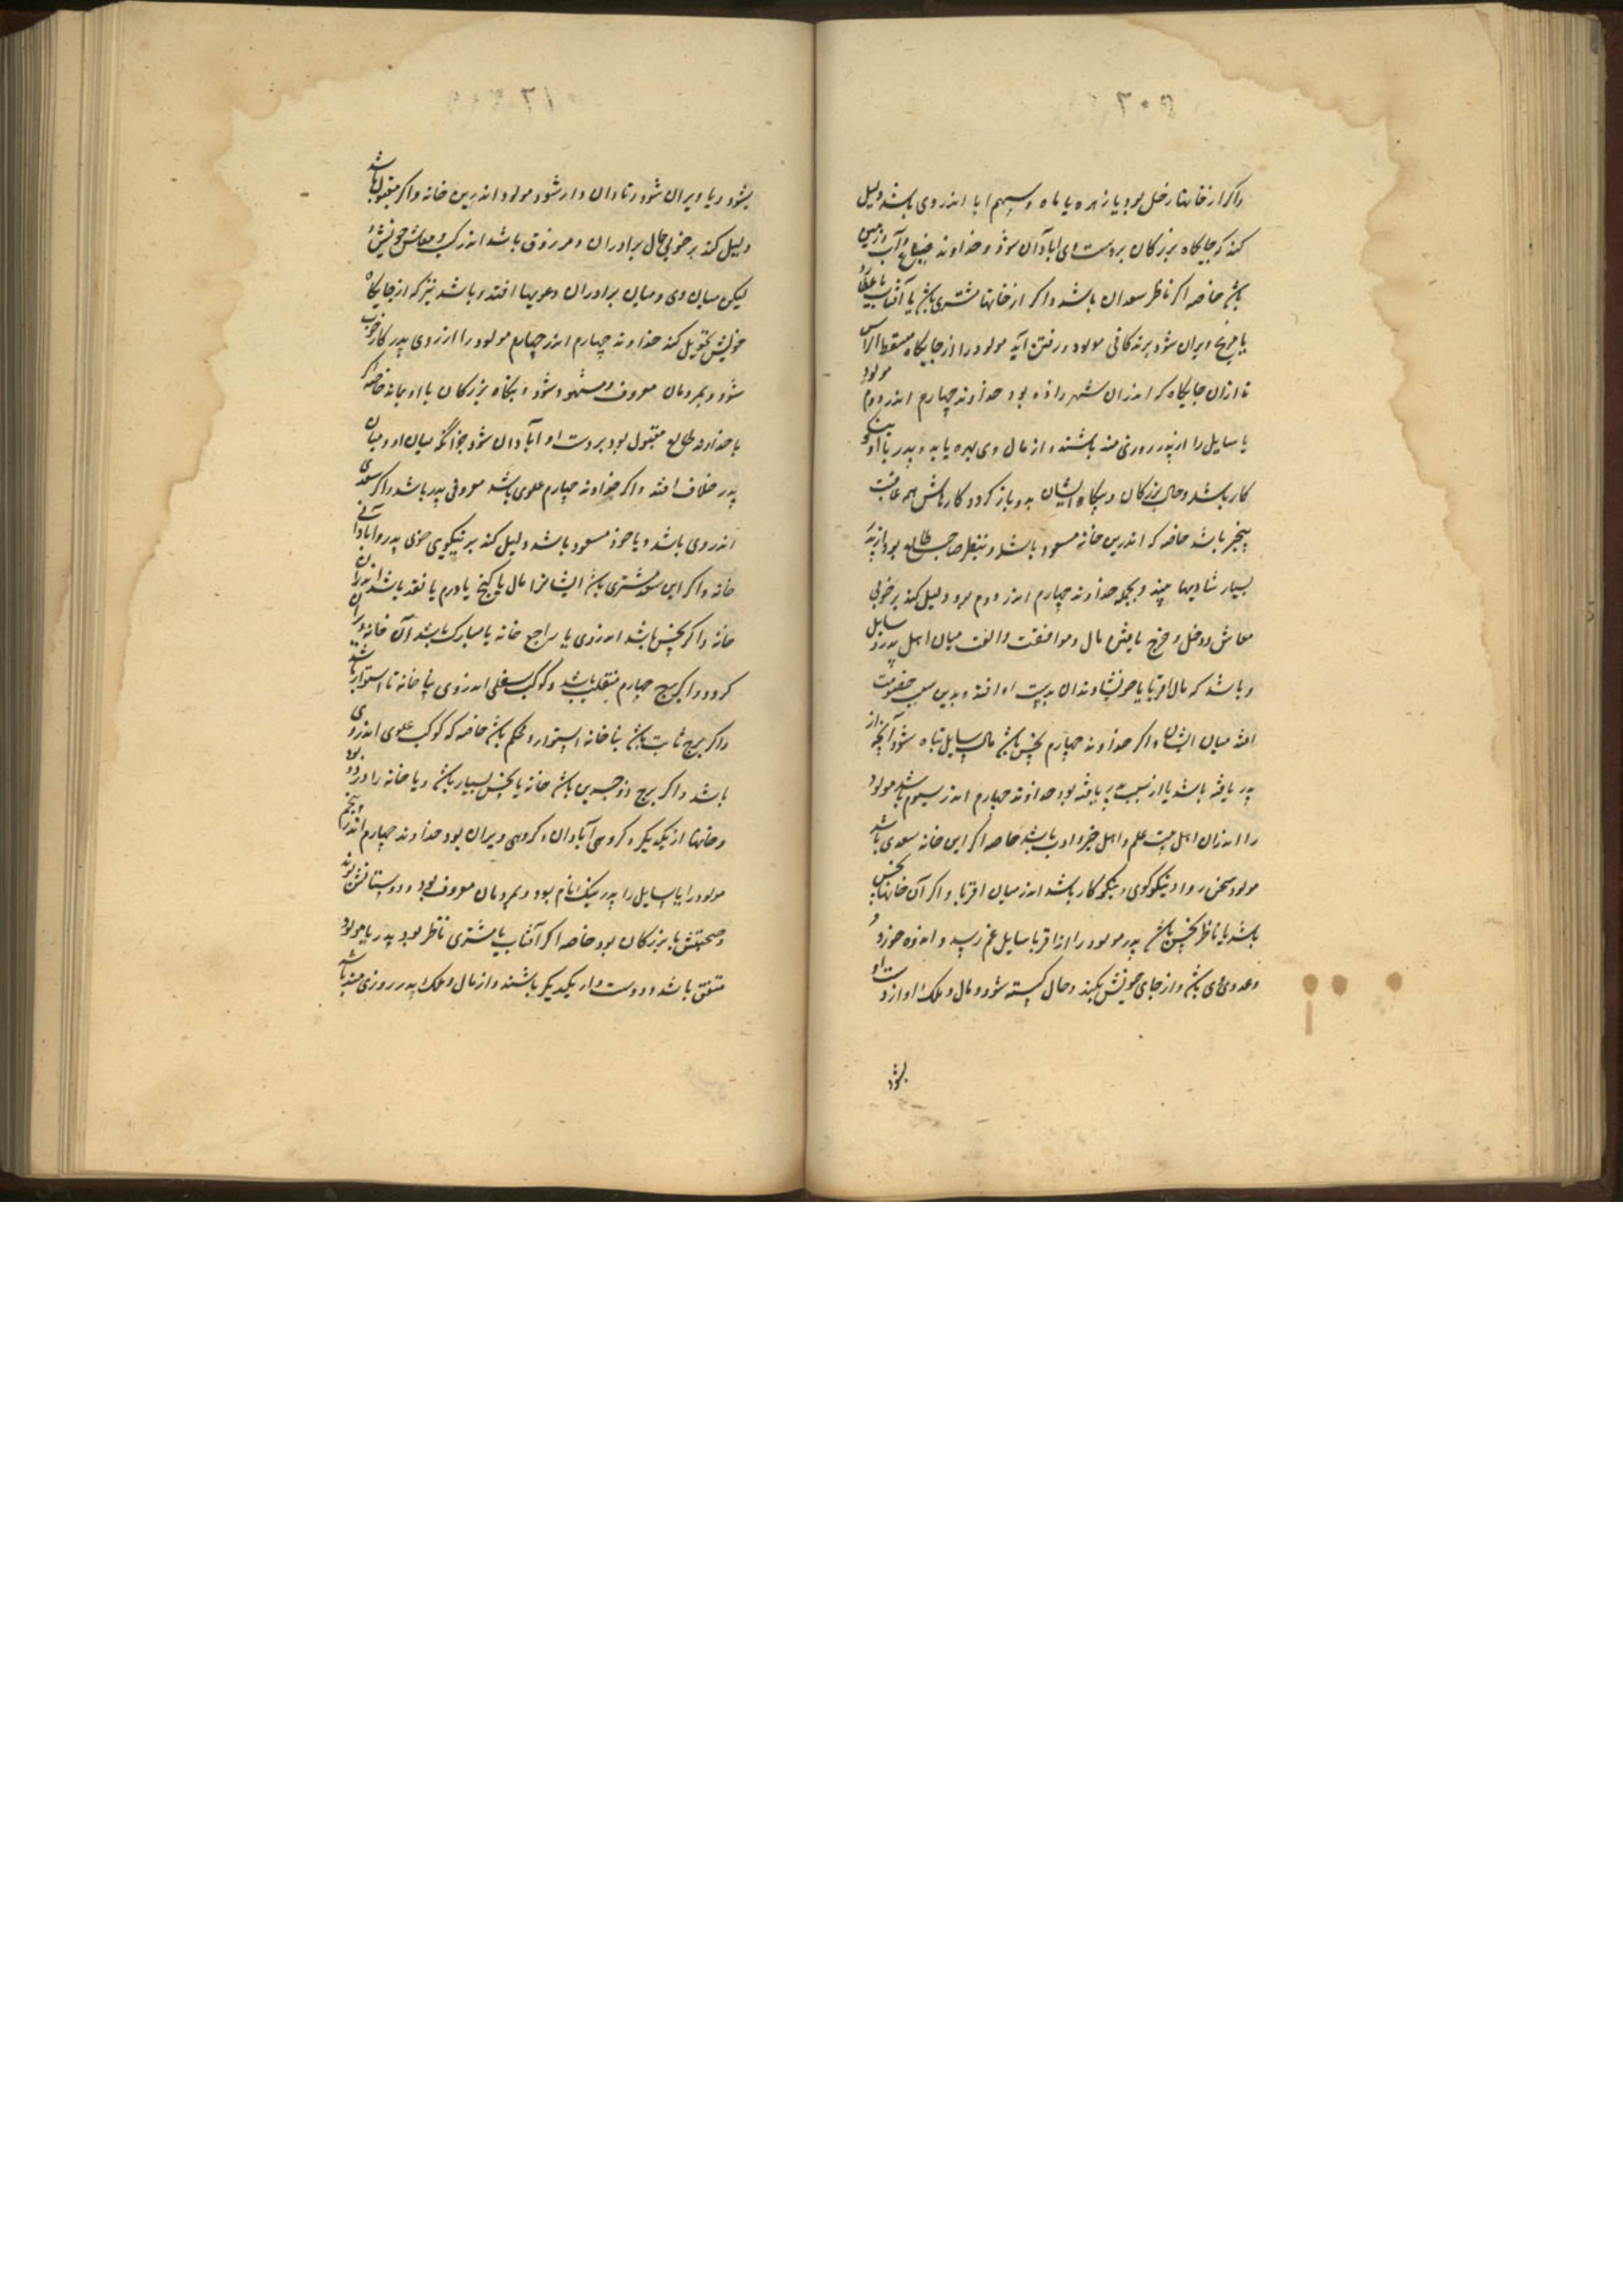 ۳۰۹
واکر ازخانهتا زحل بود یا زهره یا ماه و سهم ابا اندر وی باشد دلیل
کند که جایکاه بزرکان بردست وی ابادآن شوذ و خداوند ضیاع و آب و زمین
باشد خاصه اکر ناظر سعدان باشد واکر ازخانهتا مشتری باشد یا آفتاب یا عطارد
یا مریخ ویران شود بزندکانی مولود و رفتن آید مولود را از جایکاه مسقط الراس
تا ازان جایکاه که اندران شهر زاده بود خداوند چهارم اندر دوم مولود
یا سایل را از پدر روزی مند باشند و از مال وی بهره یابد و پدر با او نیکو
کار باشد و حال بزرکان و بیکاه ایشان بدو باز کردد کارهاش همه عاقبت
بخیر باشد خاصه که اندرین خانه مسعود باشد و بنظر صاحب طالع بود از پدر
بسیار شادیها بیند و بجمله خداوند چهارم اندر دوم مرد دلیل کند بر خوبی
معاش و دخل و خرج یافتن مال و موافقت والفت میان اهل پدر و سایل
و باشد که مال اقربا یا خویشاوندان بدست او افتد و بدین سبب خصومت
افتد میان ایشان واکر خداوند چهارم نحس باشد مال سایل تباه شود آنچه از
پدر یافته باشد یا از نسبت پدر یافته بود خداوند چهارم اندر سیوم باشد مولود
را اندران اهل بیت علم و اهل خیر و ادب باشد خاصه اکر این خانه سعدی باشد
مولود سخن روا و نیکوکوی و نیکوکار باشد اندر میان اقربا و اکر آن خانهتا نحس
باشد یا ناظر نحس باشد پدر مولود را از اقربا سایل غم رسد و اندوه خورد و
وعدوی وی باشد و از جای خویش بکیند و حال کسسته شود و مال و ملک او از دست او
بشود
۳۱۰
بشود و یا ویران شود و تاوان دار شود مولود اندرین خانه واکر مقبول باشد
دلیل کند بر خوبی حال برادران و مرزوق باشد اندر کسب و معاش خویش
لیکن میان وی و میان برادران دعویها افتد و باشد نیز که از جایکاه
خویش تحویل کند خداوند چهارم اندر چهارم مولود را از روی پدر کار خوب
شود و بمردمان معروف و مشهود شود و بنکاه بزرکان با او بماند خاصه که
با خداوند طالع مقبول بود بردست او آبادان شود جز آنکه میان او و میان
پدر خلاف افتد واکر خداوند چهارم علوی باشد معروفی پدر باشد واکر سعدی
اندر وی باشد و یا خود مسعود باشد دلیل کند بر نیکویی خوی پدر و آبادانی
خانه واکر این سعد مشتری باشد ایشانرا مال یا کنج یا درم یا نقد باشد اندران
خانه واکر نحس باشد اندر وی یا راجع خانه نامبارک باشد آن خانه ویران
کردد واکر برج چهارم منقلب باشد و کوکب سفلی اندر وی بنا خانه نااستوار باشد
واکر برج ثابت باشد بنا خانه استوار و محکم باشد خاصه که کوکب علوی اندر وی
باشد واکر برج ذوجسدین باشد خانه یا نحس بسیار باشد و یا خانه را دو در بود
وخانها از یکدیکر و کروهی آبادان و کروهی ویران بود خداوند چهارم اندر پنجم
مولود را یا سایل را پدر نیک نام بود و بمردمان معروف بود و دوستانش بوند
وصحبتش با بزرکان بود خاصه اکر آفتاب یا مشتری ناظر بود پدر یا مولود
متفق باشد و دوست دار یکدیکر باشند و از مال و ملک پدر روزی مند باشد